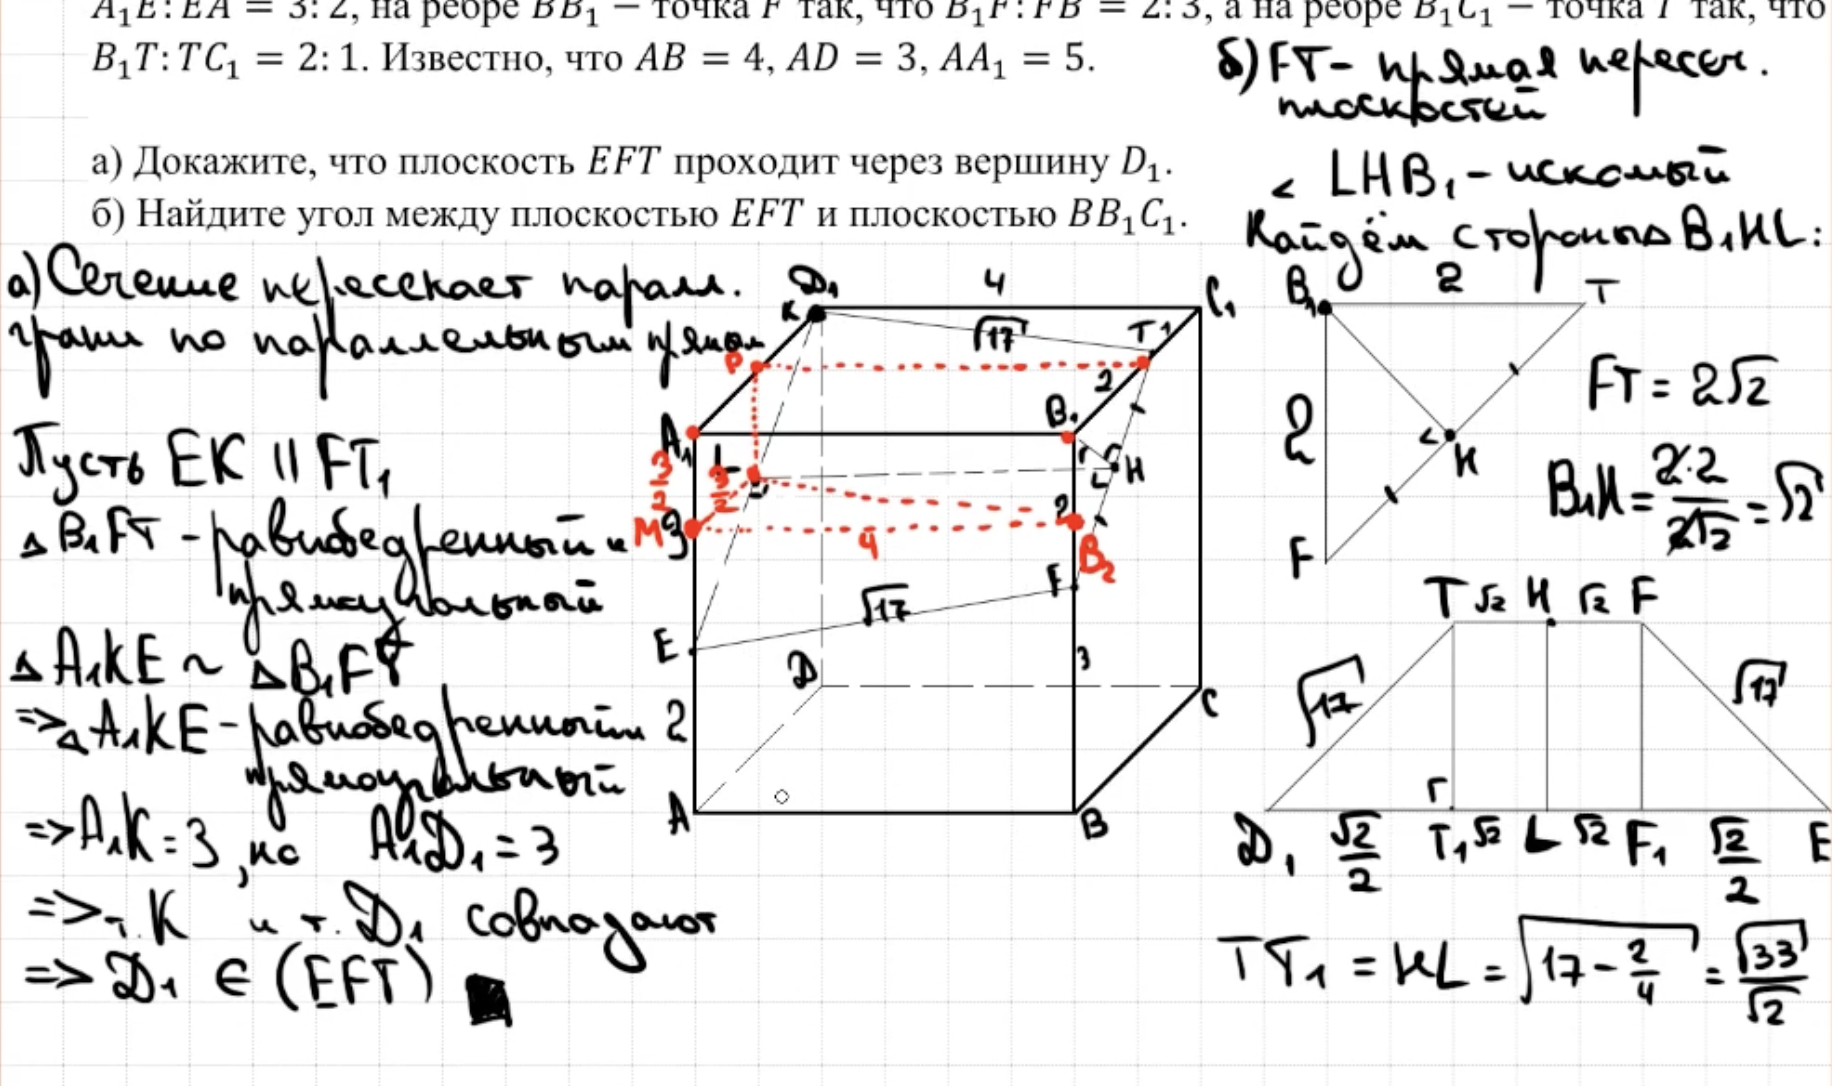 A₁E: EA = 3: 2, на ребре BB₁ − точка F так, что B₁F: FB = 2: 3, а на ребре B₁C₁ − точка T так, что
B₁T: TC₁ = 2: 1. Известно, что AB = 4, AD = 3, AA₁ = 5.
а) Докажите, что плоскость EFT проходит через вершину D₁.
б) Найдите угол между плоскостью EFT и плоскостью BB₁C₁.
а) Сечение пересекает паралл.
грани по параллельным прямым
Пусть EK || FT₁
△ B₁FT - равнобедренный и
прямоугольный
△ A₁KE ~ △ B₁FT
=> △ A₁KE - равнобедренный
прямоугольный
=> A₁K = 3, но A₁D₁ = 3
=> т. K и т. D₁ совпадают
=> D₁ ∈ (EFT)
D₁
K
4
C₁
√17
T
1
P
2
A₁
B₁
3/2
3/2
L
H
M
3
4
2
B₂
√17
F
E
D
3
2
C
A
B
б) FT - прямая пересеч.
плоскостей
< LHB₁ - искомый
Найдём стороны B₁HL:
B₁
2
T
2
H
F
FT = 2√2
B₁H = 2·2/2√2 = √2
T √2 H √2 F
√17
√17
D₁ √2/2 T₁ √2 L √2 F₁ √2/2 E
TT₁ = HL = √17 - 2/4 = √33/√2